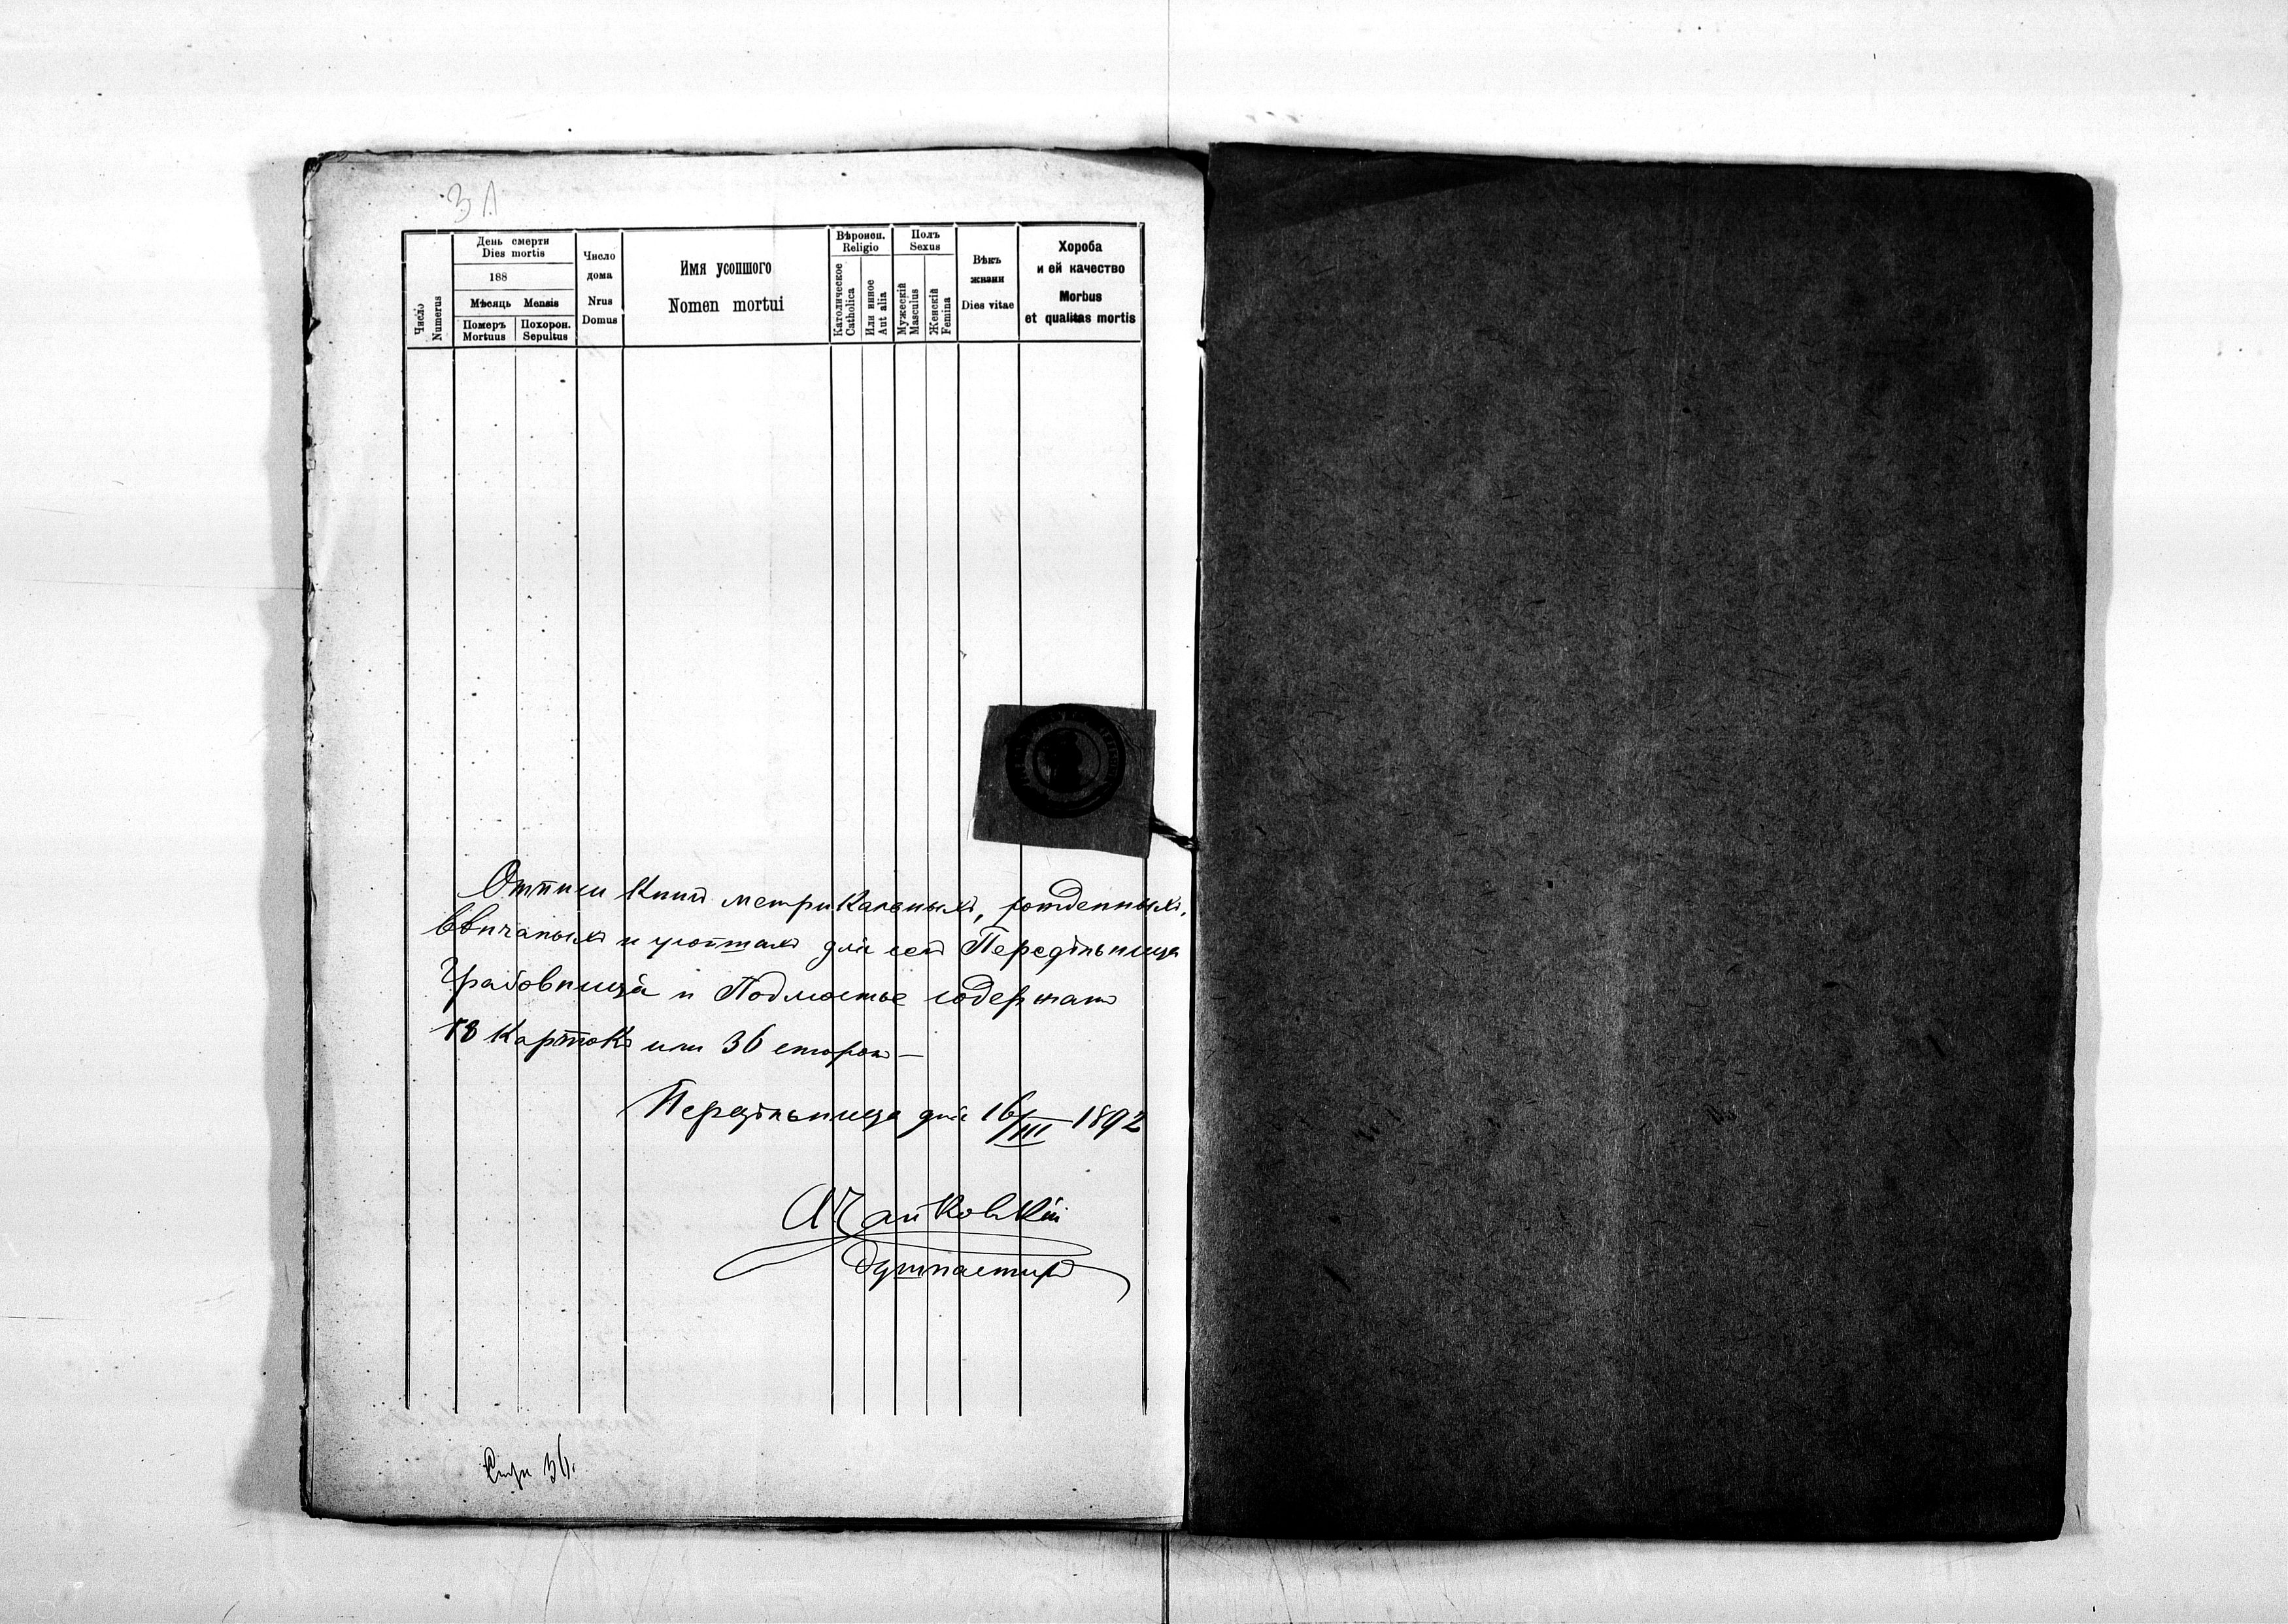 31
Число
Numerus
День смерти
Dies mortis
188
Мѣсяць Mensis
Померъ
Mortuus
Похорон.
Sepultus
Число
дома
Nrus
Domus
Имя усопшого
Nomen mortui
Вѣроисп.
Religio
Католическое
Catholica
Или инное
Aut alia
Полъ
Sexus
Мужескій
Masculus
Женскій
Femina
Вѣкъ
жизни
Dies vitae
Хороба
и ей качество
Morbus
et qualitas mortis
Отписи книгъ метрикальныхъ, рожденныхъ,
вѣнчаныхъ и усопшихъ для селъ Передѣльница
Грабовница и Подмостье содержатъ
18 картокъ или 36 сторон —
Передѣльница дня 16/III 1892
АЧайковскій
душпастырь
Стрн 36.